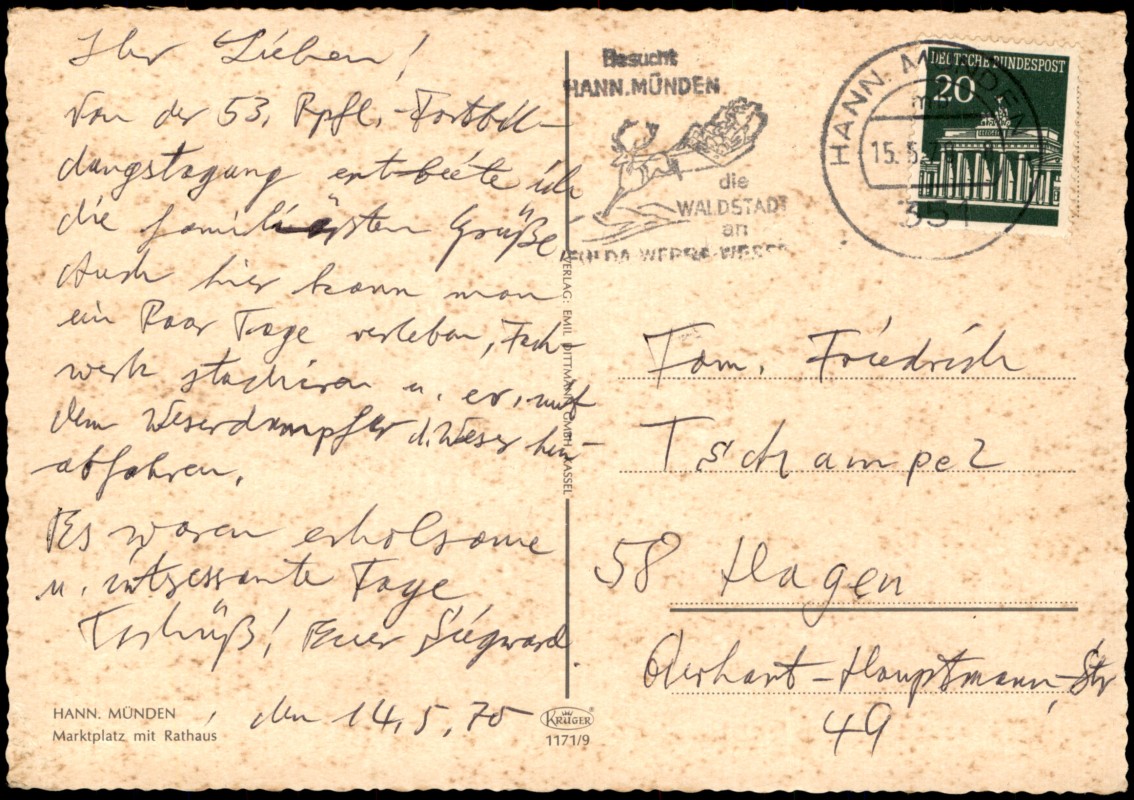 Ihr Lieben!
Von der 53. Rpfl.-Fortbil-
dungstagung entbiete ich
die familiösten Grüße!
Auch hier kann man
ein Paar Tage verleben, Fach-
werk studieren u. ev. mit
dem Weserdampfer d. Weser hin-
abfahren.
Es waren erholsame
u. intressante Tage
Tschüß! Euer Siegward.
HANN. MÜNDEN
Marktplatz mit Rathaus
, den 14.5.70
KRÜGER
1171/9
VERLAG: EMIL DITTMANN GMBH. KASSEL
Besucht
HANN. MÜNDEN
die
WALDSTADT
an
FULDA-WERRA-WESER
HANN. MÜNDEN
15.5.70
351
DEUTSCHE BUNDESPOST
20
Fam. Friedrich
Tschampel
58 Hagen
Gerhart-Hauptmann-Str
49